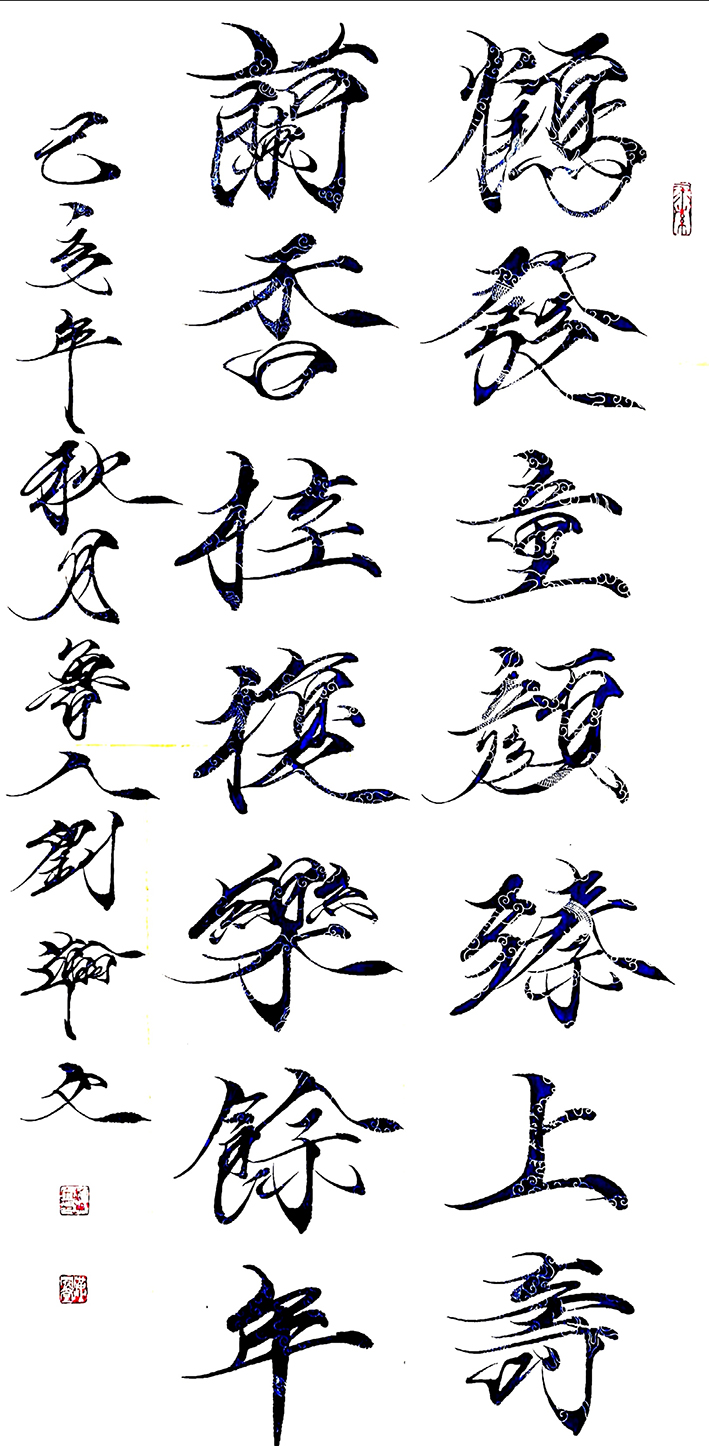 鶴發童顏臻上壽
蘭香桂馥樂餘年
己亥年秋月魯人劉瀚文